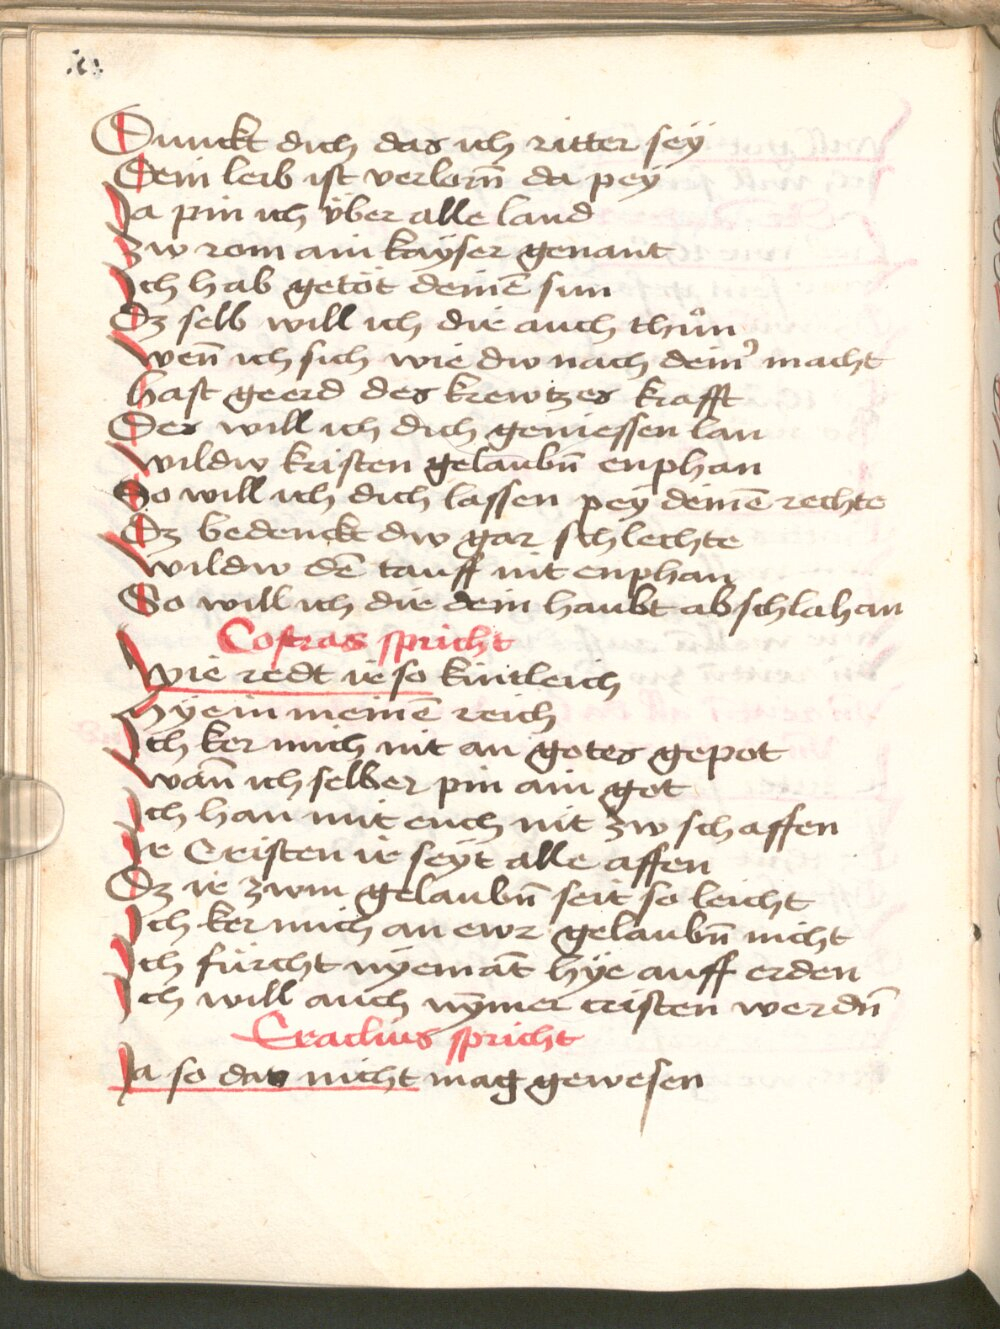 Dunckt dich das ich ritter sey
Dein leib ist verlorn̄ da pey
Ja pin ich v̈ber alle land
Zw rom ain kayser genant
Ich hab getöt deinē sun
Dz selb will ich dir auch thůn
Wen̄ ich sich wie dw nach deinr macht
hast geerd des krewtzes krafft
Des will ich dich geniessen lan
Wildw kristen gelaubn̄ enphan
So will ich dich lassen pey deinē rechte
Dz bedenckt dw gar schlechte
Wildw dē tauff nit enphan
So will ich dir dein haubt abschlahan
Cosras spricht
Wie redt ir so kintleich
Hye in meinē reich
Ich ker mich nit an gotes gepot
Wan̄ ich selber pin ain got
Ich han mit euch nit zw schaffen
Ir Cristen ir seyt alle affen
Dz ir zwm gelaubn̄ seit so leicht
Ich ker mich an ewr gelaubn̄ nicht
Ich fürcht nyemāt hye auff erden
Ich will auch nȳmer cristen werdn̄
Eraclius spricht
Ja so das nicht mag gewesen